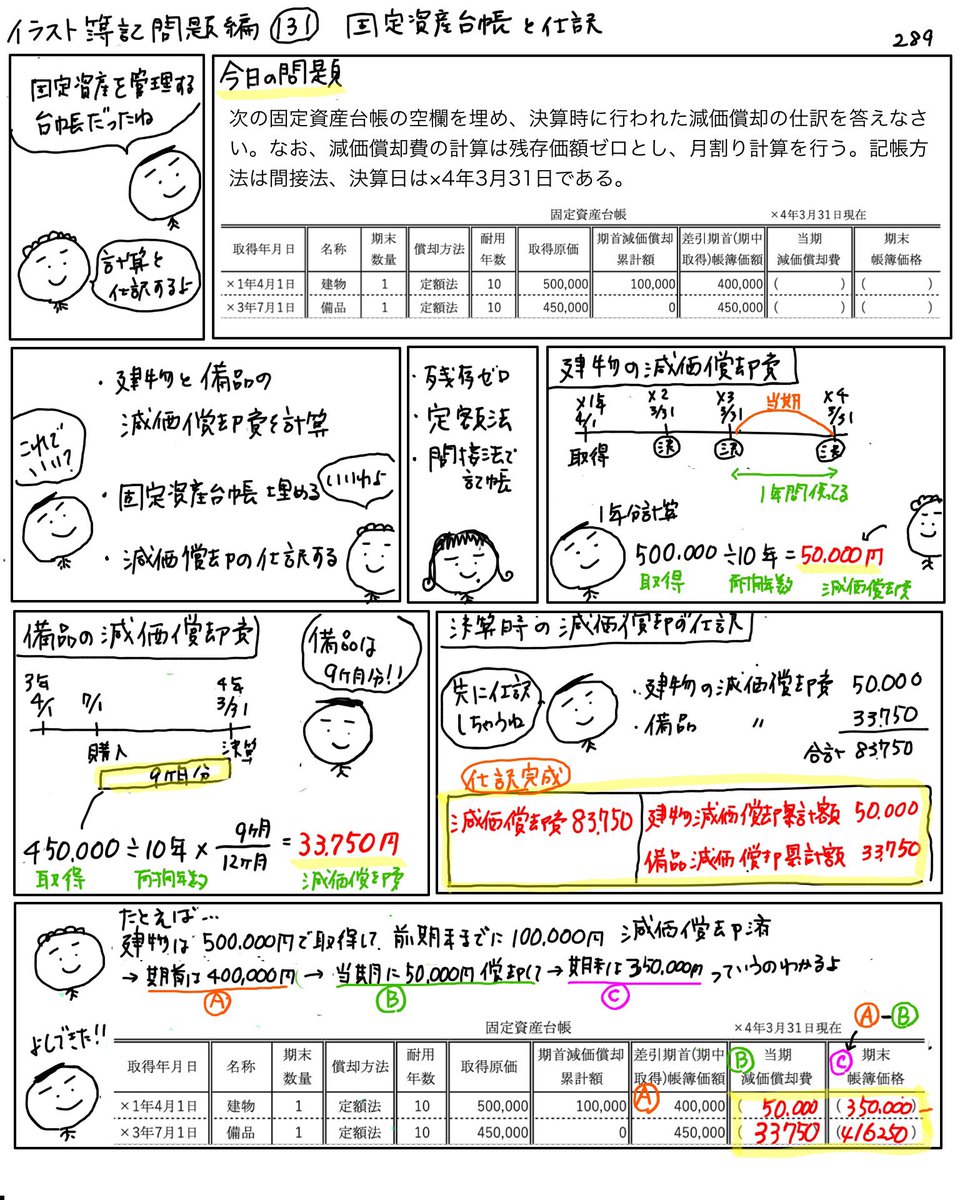 イラスト簿記問題編 131 固定資産台帳と仕訳
289
固定資産を管理する
台帳だったね
計算と
仕訳するよ
今日の問題
次の固定資産台帳の空欄を埋め、決算時に行われた減価償却の仕訳を答えなさ
い。なお、減価償却費の計算は残存価額ゼロとし、月割り計算を行う。記帳方
法は間接法、決算日は×4年3月31日である。
固定資産台帳 ×4年3月31日現在
取得年月日 名称 期末数量 償却方法 耐用年数 取得原価 期首減価償却累計額 差引期首(期中取得)帳簿価額 当期減価償却費 期末帳簿価格
×1年4月1日 建物 1 定額法 10 500,000 100,000 400,000 ( ) ( )
×3年7月1日 備品 1 定額法 10 450,000 0 450,000 ( ) ( )
・建物と備品の
減価償却費を計算
これで
いい?
・固定資産台帳埋める
いいわよ
・減価償却の仕訳する
・残存ゼロ
・定額法
・間接法で
記帳
建物の減価償却費
×1年 ×2 ×3 当期 ×4
4/1 3/31 3/31 3/31
取得 決 決 決
1年間使ってる
1年分計算
500.000÷10年=50.000円
取得 耐用年数 減価償却費
備品の減価償却費
備品は
9ヶ月分!!
3年 4年
4/1 7/1 3/31
購入 決算
9ヶ月分
450.000÷10年×9ヶ月/12ヶ月=33.750円
取得 耐用年数 減価償却費
決算時の減価償却の仕訳
先に仕訳
しちゃうね
・建物の減価償却費 50.000
・備品 〃 33.750
合計 83.750
仕訳完成
減価償却費 83.750 建物減価償却累計額 50.000
備品減価償却累計額 33.750
たとえば…
建物は500.000円で取得して、前期末までに100.000円 減価償却済
→期首は400,000円→当期に50.000円償却して→期末は350,000円っていうのわかるよ
A B C
よしできた!!
固定資産台帳 ×4年3月31日現在 A-B
取得年月日 名称 期末数量 償却方法 耐用年数 取得原価 期首減価償却累計額 差引期首(期中取得)帳簿価額 B 当期減価償却費 C 期末帳簿価格
×1年4月1日 建物 1 定額法 10 500,000 100,000 A 400,000 (50.000) (350.000)
×3年7月1日 備品 1 定額法 10 450,000 0 450,000 (33750) (416250)